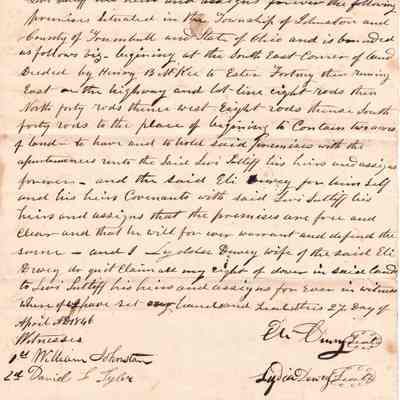 his heirs and assigns forever the following
premises situated in the Township of Johnston and
County of Trumbull and State of Ohio and is bounded
as follows viz - begining at the South East Corner of land
Deeded by Henry B McKee to Ester Fortny then runing
East on the highway and lot line eight rods then
North forty rods thence west Eight rods thense South
forty rods to the place of begining to Contain two acres
of land - to have and to hold said premises with the
apurtanances unto the Said Levi Sutliff his heirs and assigns
forever - and the said Eli Dewey for him Self
and his heirs Covenants with said Levi Sutliff his
heirs and assigns that the premises are free and
Clear and that he will for ever warrant and defend the
same - and I Dewey wife of the said Eli
Dewey do quit Claim all my right of dower in said land
to Levi Sutliff his heirs and assigns for Ever in witness
whereof have set our hands and seals this 27 Day of
April AD 1846
Witnesses
Eli Dewy Seal
1st William Johnston
Lydia Dewey Seal
2d David L Tyler